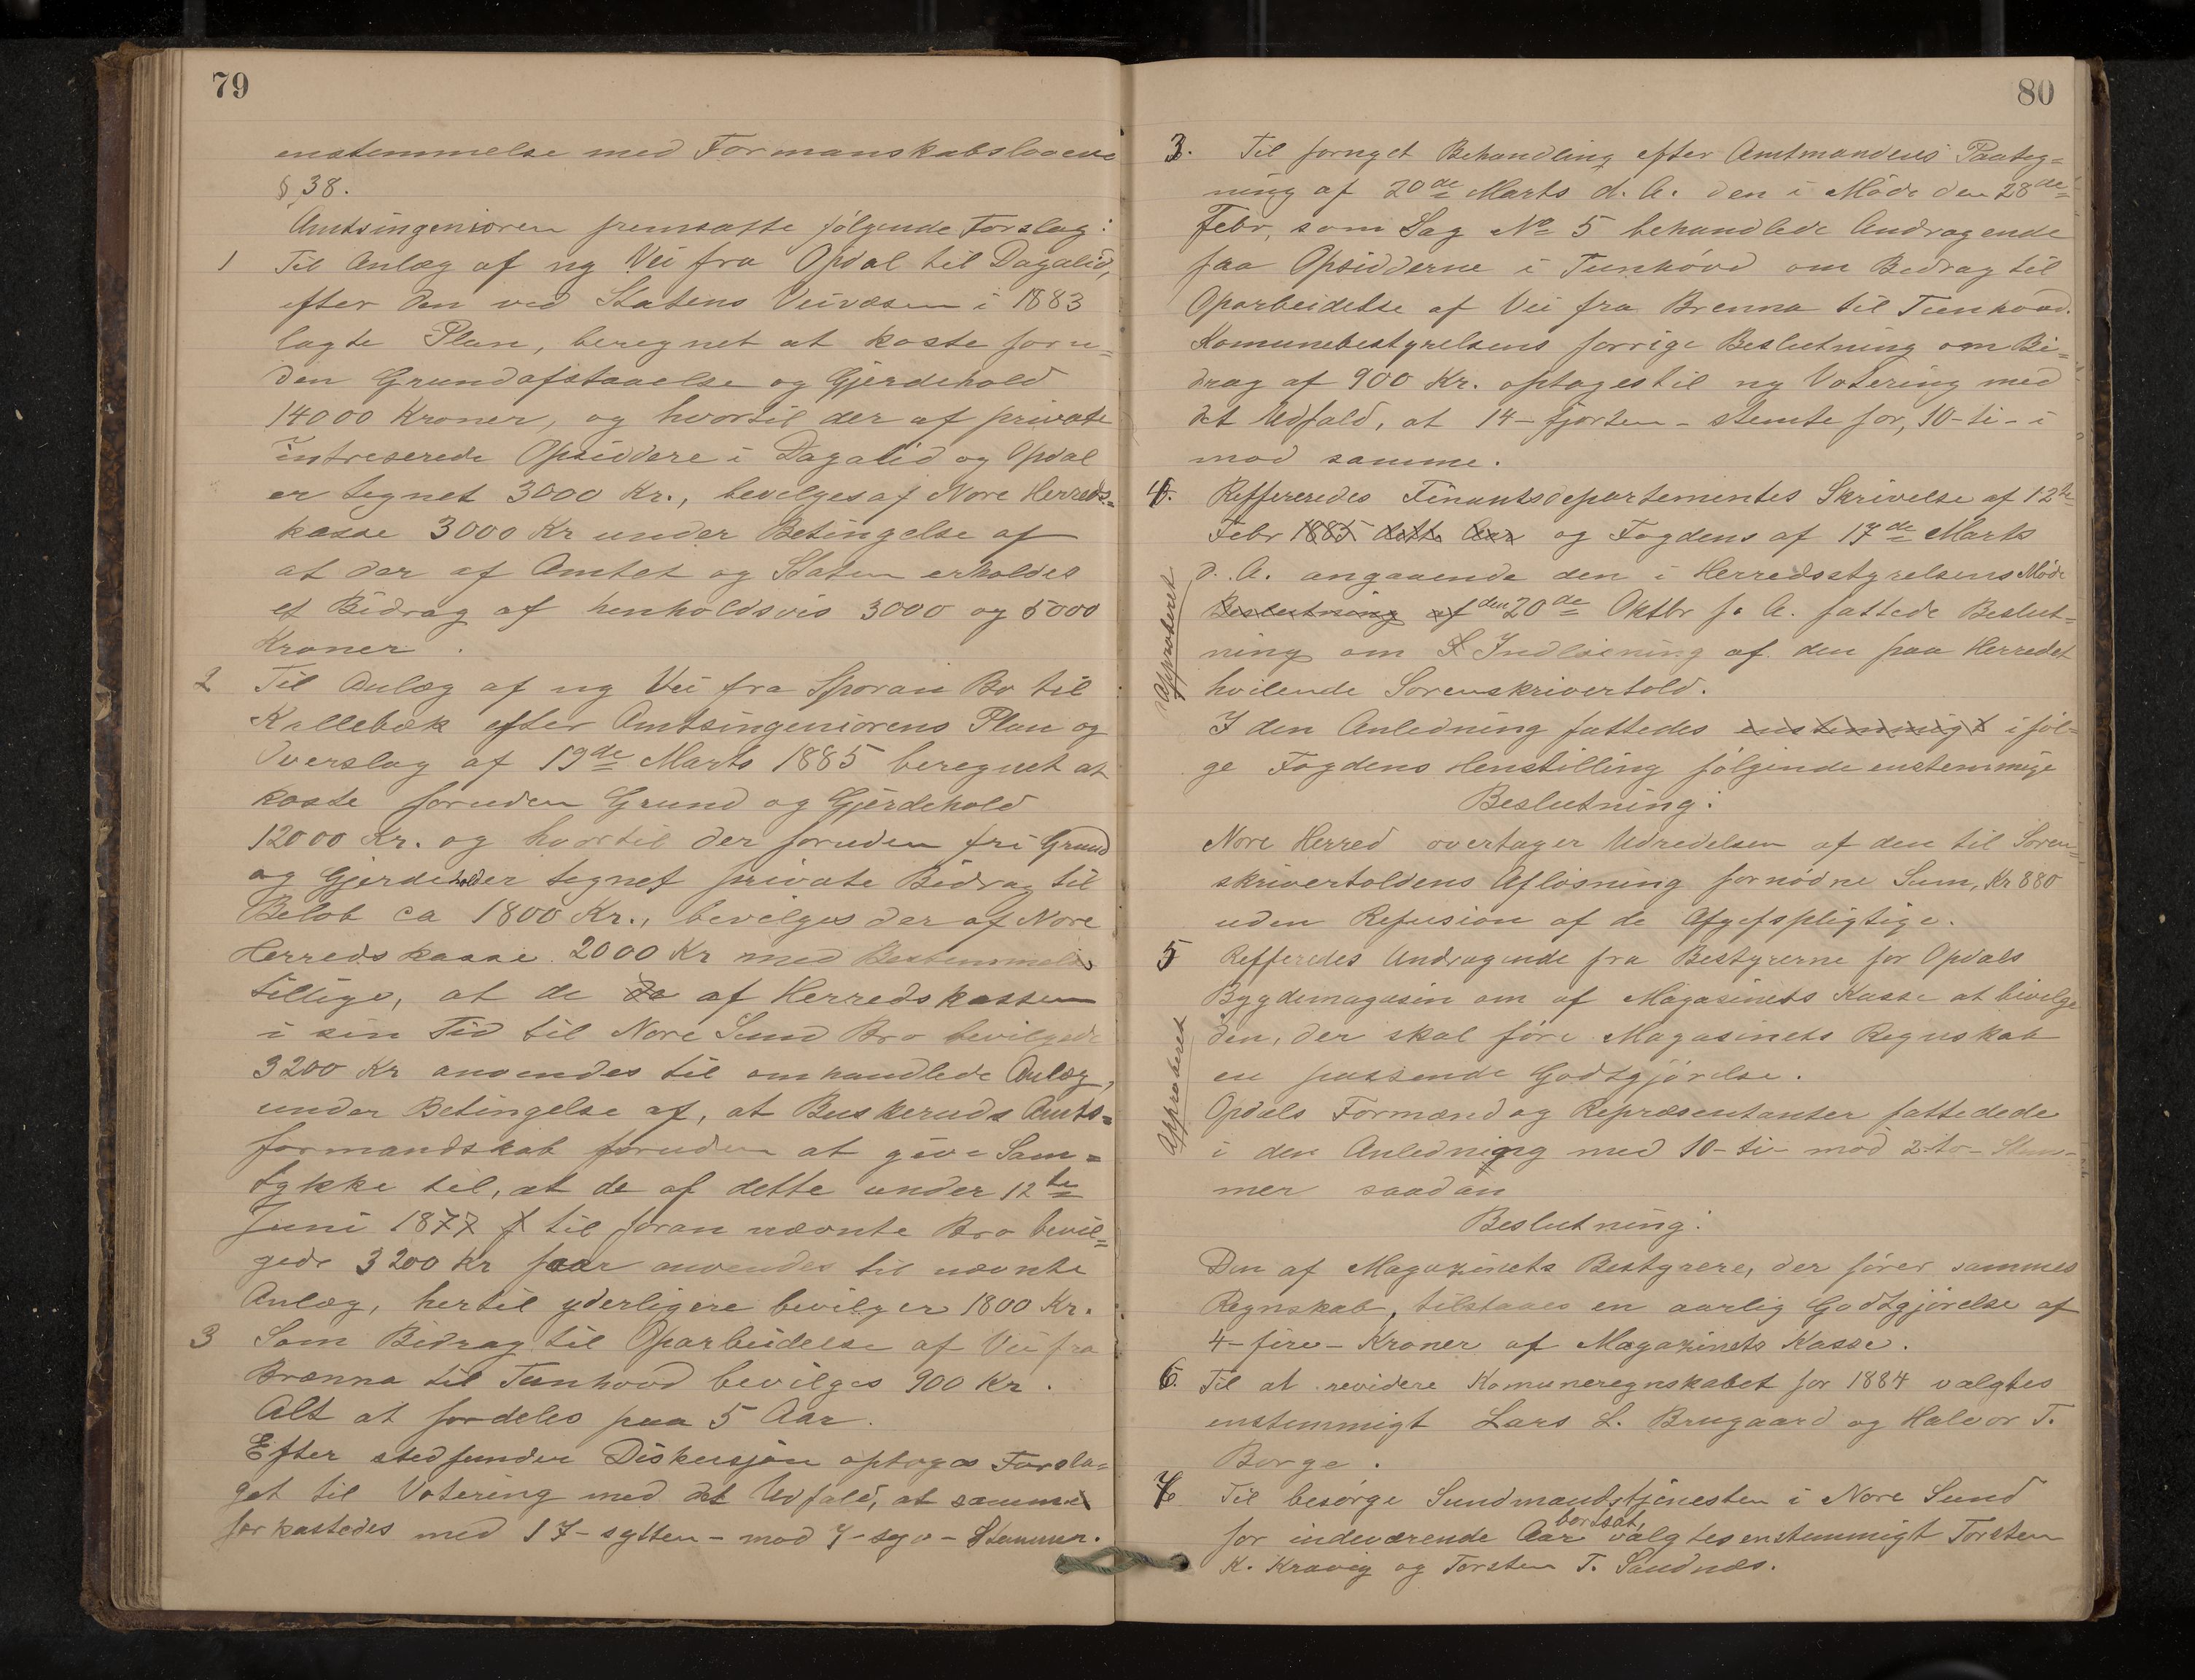 79
enstemmelse med Formanskabslovens
§ 38.
Amtsingeniøren fremsatte følgende Forslag:
1 Til Anlæg af ny Vei fra Opdal til Dagalid,
efter den ved Statens Veivæsen i 1883
lagte Plan, beregnet at koste foru=
den Grundafstaaelse og Gjerdehold
14000 Kroner, og hvortil der af private
intreserede Opsiddere i Dagalid og Opdal
er tegnet 3000 Kr., bevilges af Nore Herreds=
kasse 3000 Kr under Betingelse af
at der af Amtet og Staten erholdes
et Bidrag af henholdsvis 3000 og 5000
Kroner.
2 Til Anlæg af ny Vei fra Sporan Bro til
Kallebæk efter Amtsingeniørens Plan og
Overslag af 19de Marts 1885 beregnet at
koste foruden Grund og Gjerdehold
12000 Kr. og hvortil der foruden fri Grund
og Gjerdehold er tegnet private Bidrag til
Beløb ca 1800 Kr., bevilges der af Nore
Herredskasse 2000 Kr med Bestemmelse
tillige, at de da af Herredskassen
i sin Tid til Nore Sund Bro bevilgede
3200 Kr anvendes til omhandlede Anlæg,
under Betingelse af, at Buskeruds Amts=
formandskab foruden at give Sam=
tykke til, at de af dette under 12te
Juni 1877 f til foran nævnte Bro bevil=
gede 3200 Kr faar anvendes til nævnte
Anlæg, hertil yderligere bevilger 1800 Kr.
3 Som Bidrag til Oparbeidelse af Vei fra
Brænna til Tunhovd bevilges 900 Kr.
Alt at fordeles paa 5 Aar.
Efter stedfunden Diskusjon optoges Forsla=
get til Votering med det Udfald, at samme
forkastedes med 17 - sytten - mod 7 - syv - Stemmer.
80
3. Til fornyet Behandling efter Amtmandens Paateg=
ning af 20de Marts d. A. den i Møde den 28de
Febr, som Sag No 5 behandlede Andragende
fra Opsidderne i Tunhovd om Bidrag til
Oparbeidelse af Vei fra Brenna til Tunhovd.
Komunebestyrelsens forrige Beslutning om Bi=
drag af 900 Kr. optoges til ny Votering med
det Udfald, at 14 - fjorten - stemte for, 10 - ti - i
mod samme.
4. Reffereredes Finantsdepartementes Skrivelse af 12te
Febr 1885 dette Aar og Fogdens af 17de Marts
d. A. angaaende den i Herredsstyrelsens Møde
Beslutning af den 20de Oktbr f. A. fattede Beslut=
ning om I Indløsning af den paa Herredet
hvilende Sorenskrivertold.
Approberet
I den Anledning fattedes enstemmigt i føl=
ge Fogdens Henstilling følgende enstemmige
Beslutning:
Nore Herred overtager Udredelsen af den til Soren=
skrivertoldens Afløsning fornødne Sum, Kr 880
uden Refusion af de Afgiftspligtige.
5 Refferedes Andragende fra Bestyrerne for Opdals
Bygdemagasin om af Magasinets Kasse at bevilge
den, der skal føre Magasinets Regnskab
en passende Godtgjørelse.
Approberet
Opdals Formænd og Repræsentanter fattedede
i den Anledning med 10 - ti - mod 2 - to - Stem=
mer saadan
Beslutning:
Den af Magazinets Bestyrere, der fører sammes
Regnskab, tilstaaes en aarlig Godtgjørelse af
4 - fire - Kroner af Magazinets Kasse.
6. Til at revidere Komuneregnskabet for 1884 valgtes
enstemmigt Lars L. Brugaard og Halvor T.
Borge.
7. Til besørge Sundmandstjenesten i Nore Sund
for indeværende Aar bortsat, valgtes enstemmigt Torsten
K. Kravig og Torsten T. Sandnæs.